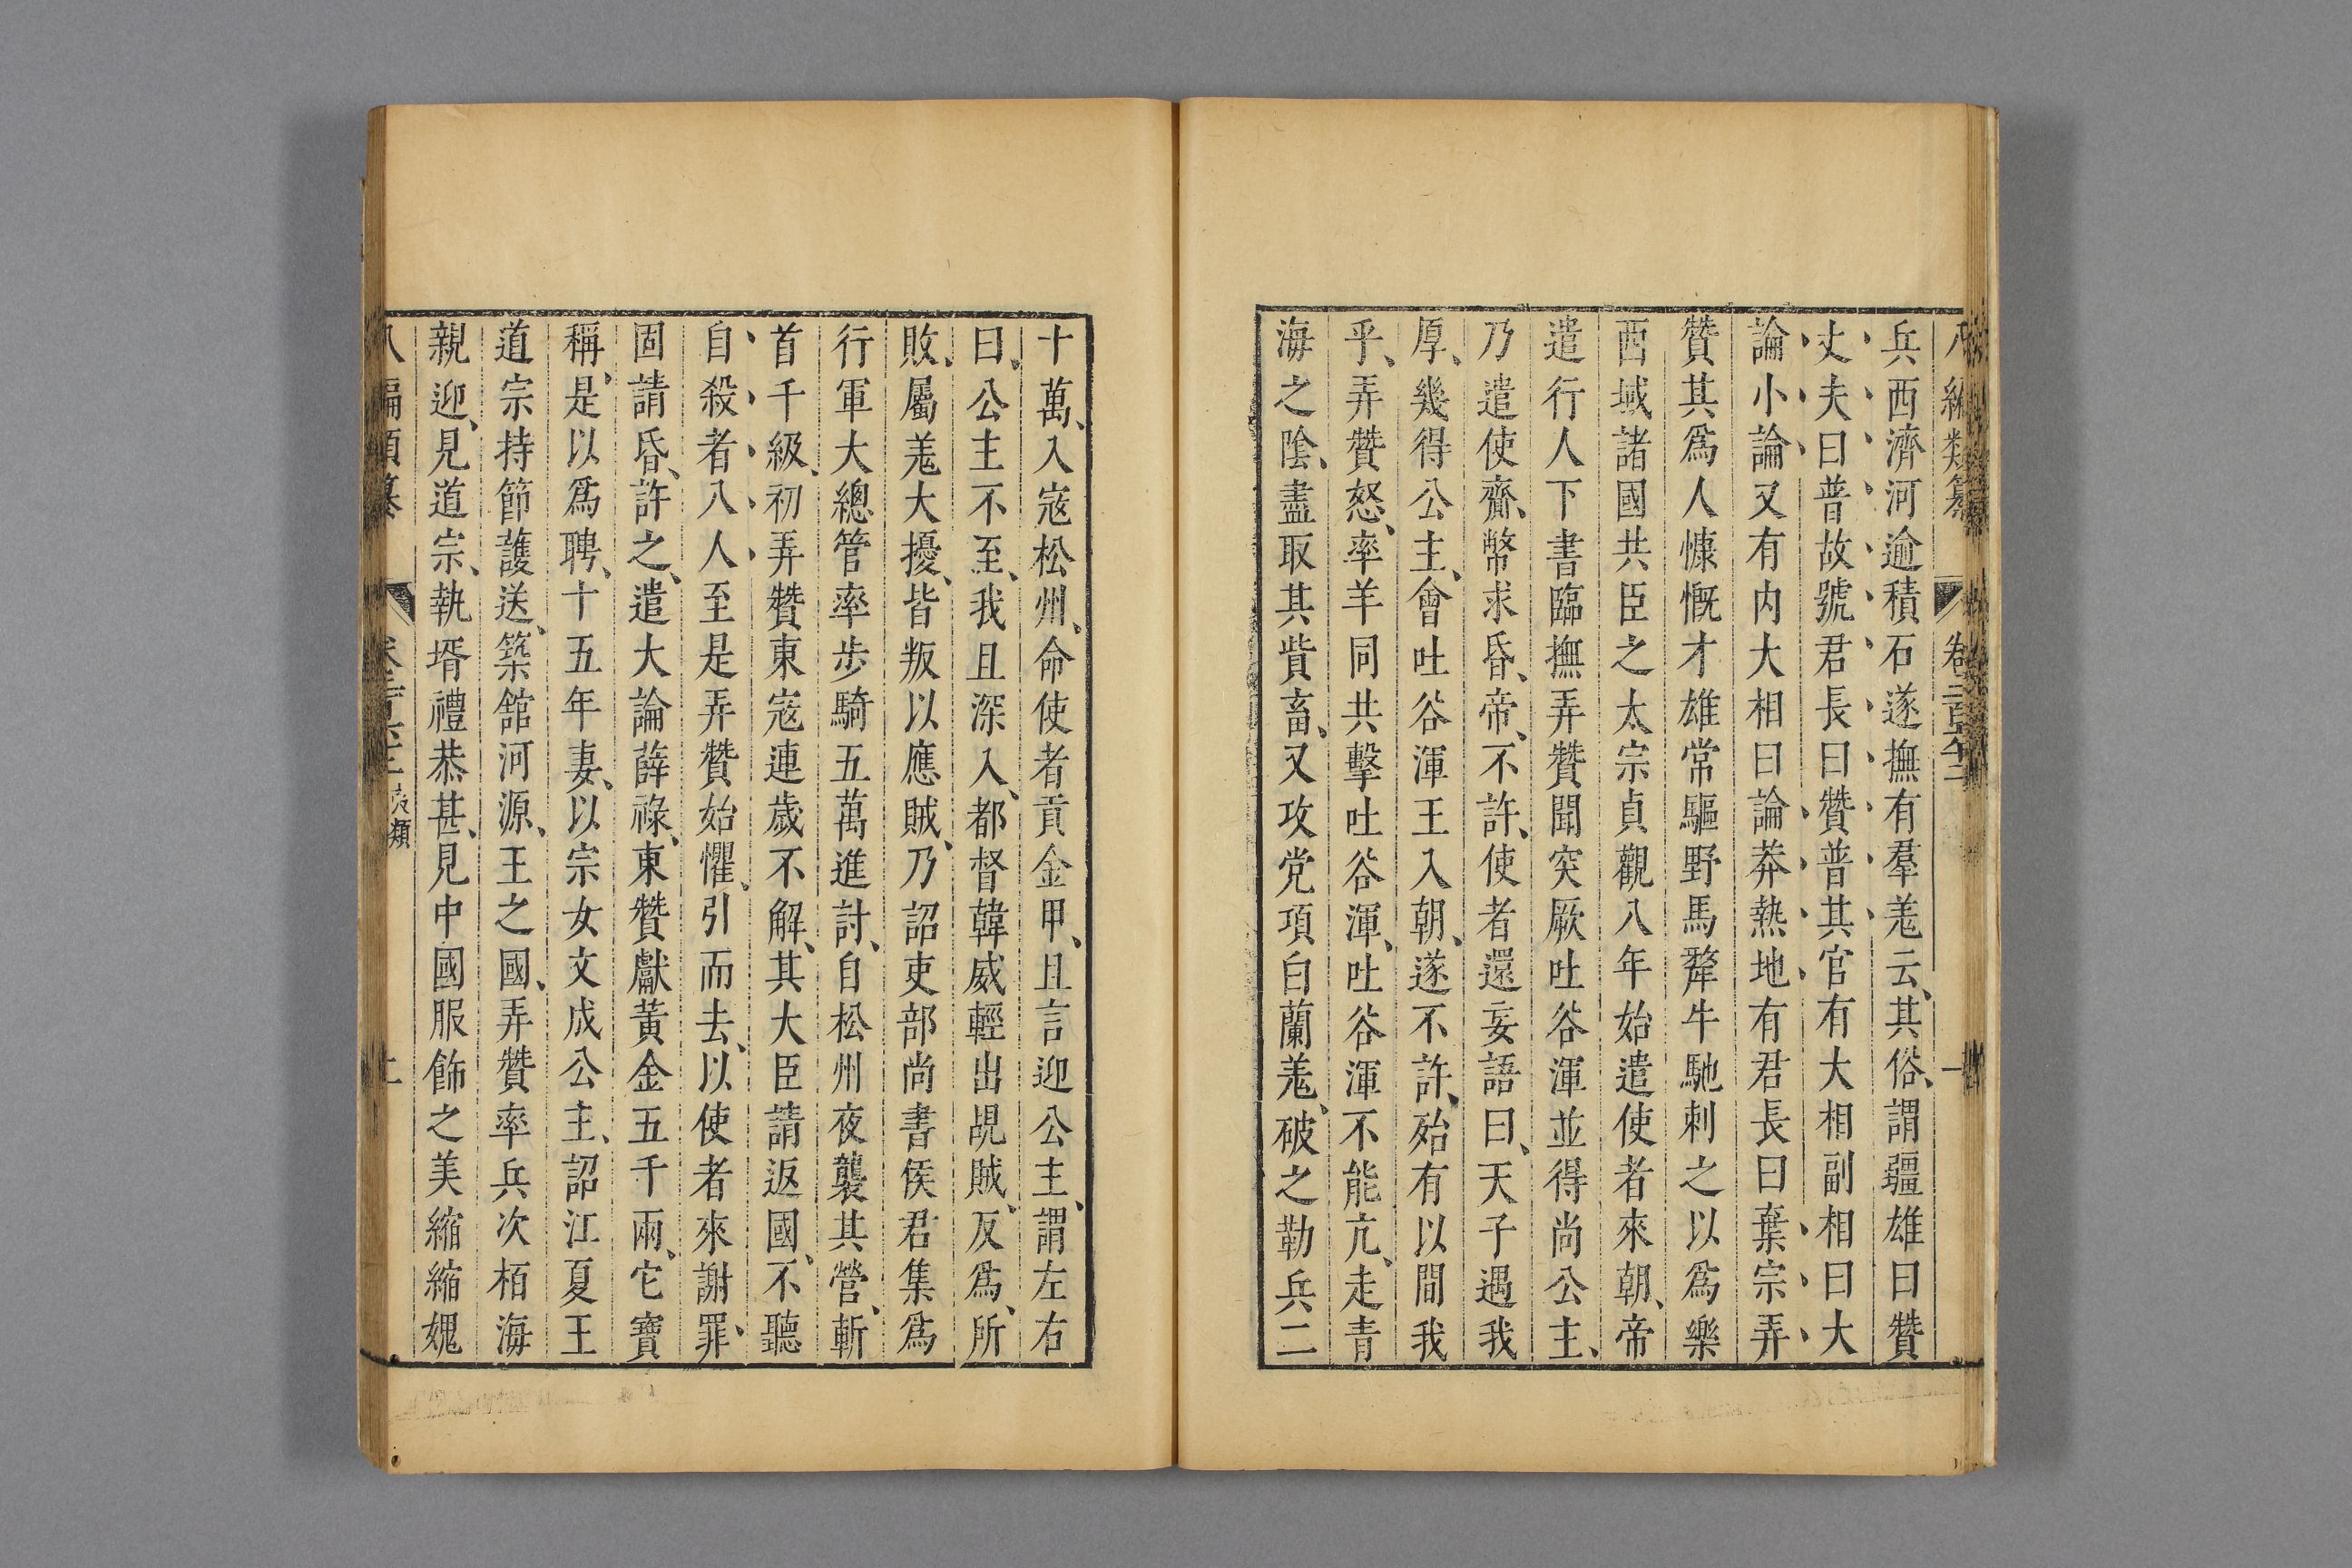 八編類纂 卷二百六十二
兵西濟河逾積石遂撫有羣羌云、其俗、謂疆雄曰贊
丈夫曰普故號君長曰贊普其官有大相副相曰大
論小論又有内大相曰論莽熱地有君長曰棄宗弄
贊其爲人慷慨才雄常驅野馬犛牛馳刺之以爲樂
西域諸國共臣之太宗貞觀八年始遣使者來朝、帝
遣行人下書臨撫弄贊聞突厥吐谷渾並得尚公主、
乃遣使齎、幣求昏、帝、不許、使者還妄語曰、天子遇我
厚、幾得公主、會吐谷渾王入朝、遂不許、殆有以間我
乎、弄贊怒、率羊同共擊吐谷渾、吐谷渾不能亢、走青
海之陰、盡取其貲畜、又攻党項白蘭羌、破之勒兵二
十萬、入寇松州、命使者貢金甲、且言迎公主、謂左右
曰、公主不至、我且深入、都督韓威輕出覘賊、反爲、所
敗、屬羌大擾、皆叛以應賊、乃詔吏部尚書侯君集爲
行軍大總管率步騎五萬進討、自松州夜襲其營、斬
首千級、初弄贊東寇連歲不解、其大臣請返國、不聽
自殺者八人至是弄贊始懼、引而去、以使者來謝罪、
固請昏、許之、遣大論薛祿、東贊獻黃金五千兩、它寶
稱、是以爲聘、十五年妻、以宗女文成公主、詔江夏王
道宗持節護送、築舘河源、王之國、弄贊率兵次栢海
親迎、見道宗、執壻禮恭甚、見中國服飾之美縮縮媿
八編類纂 類